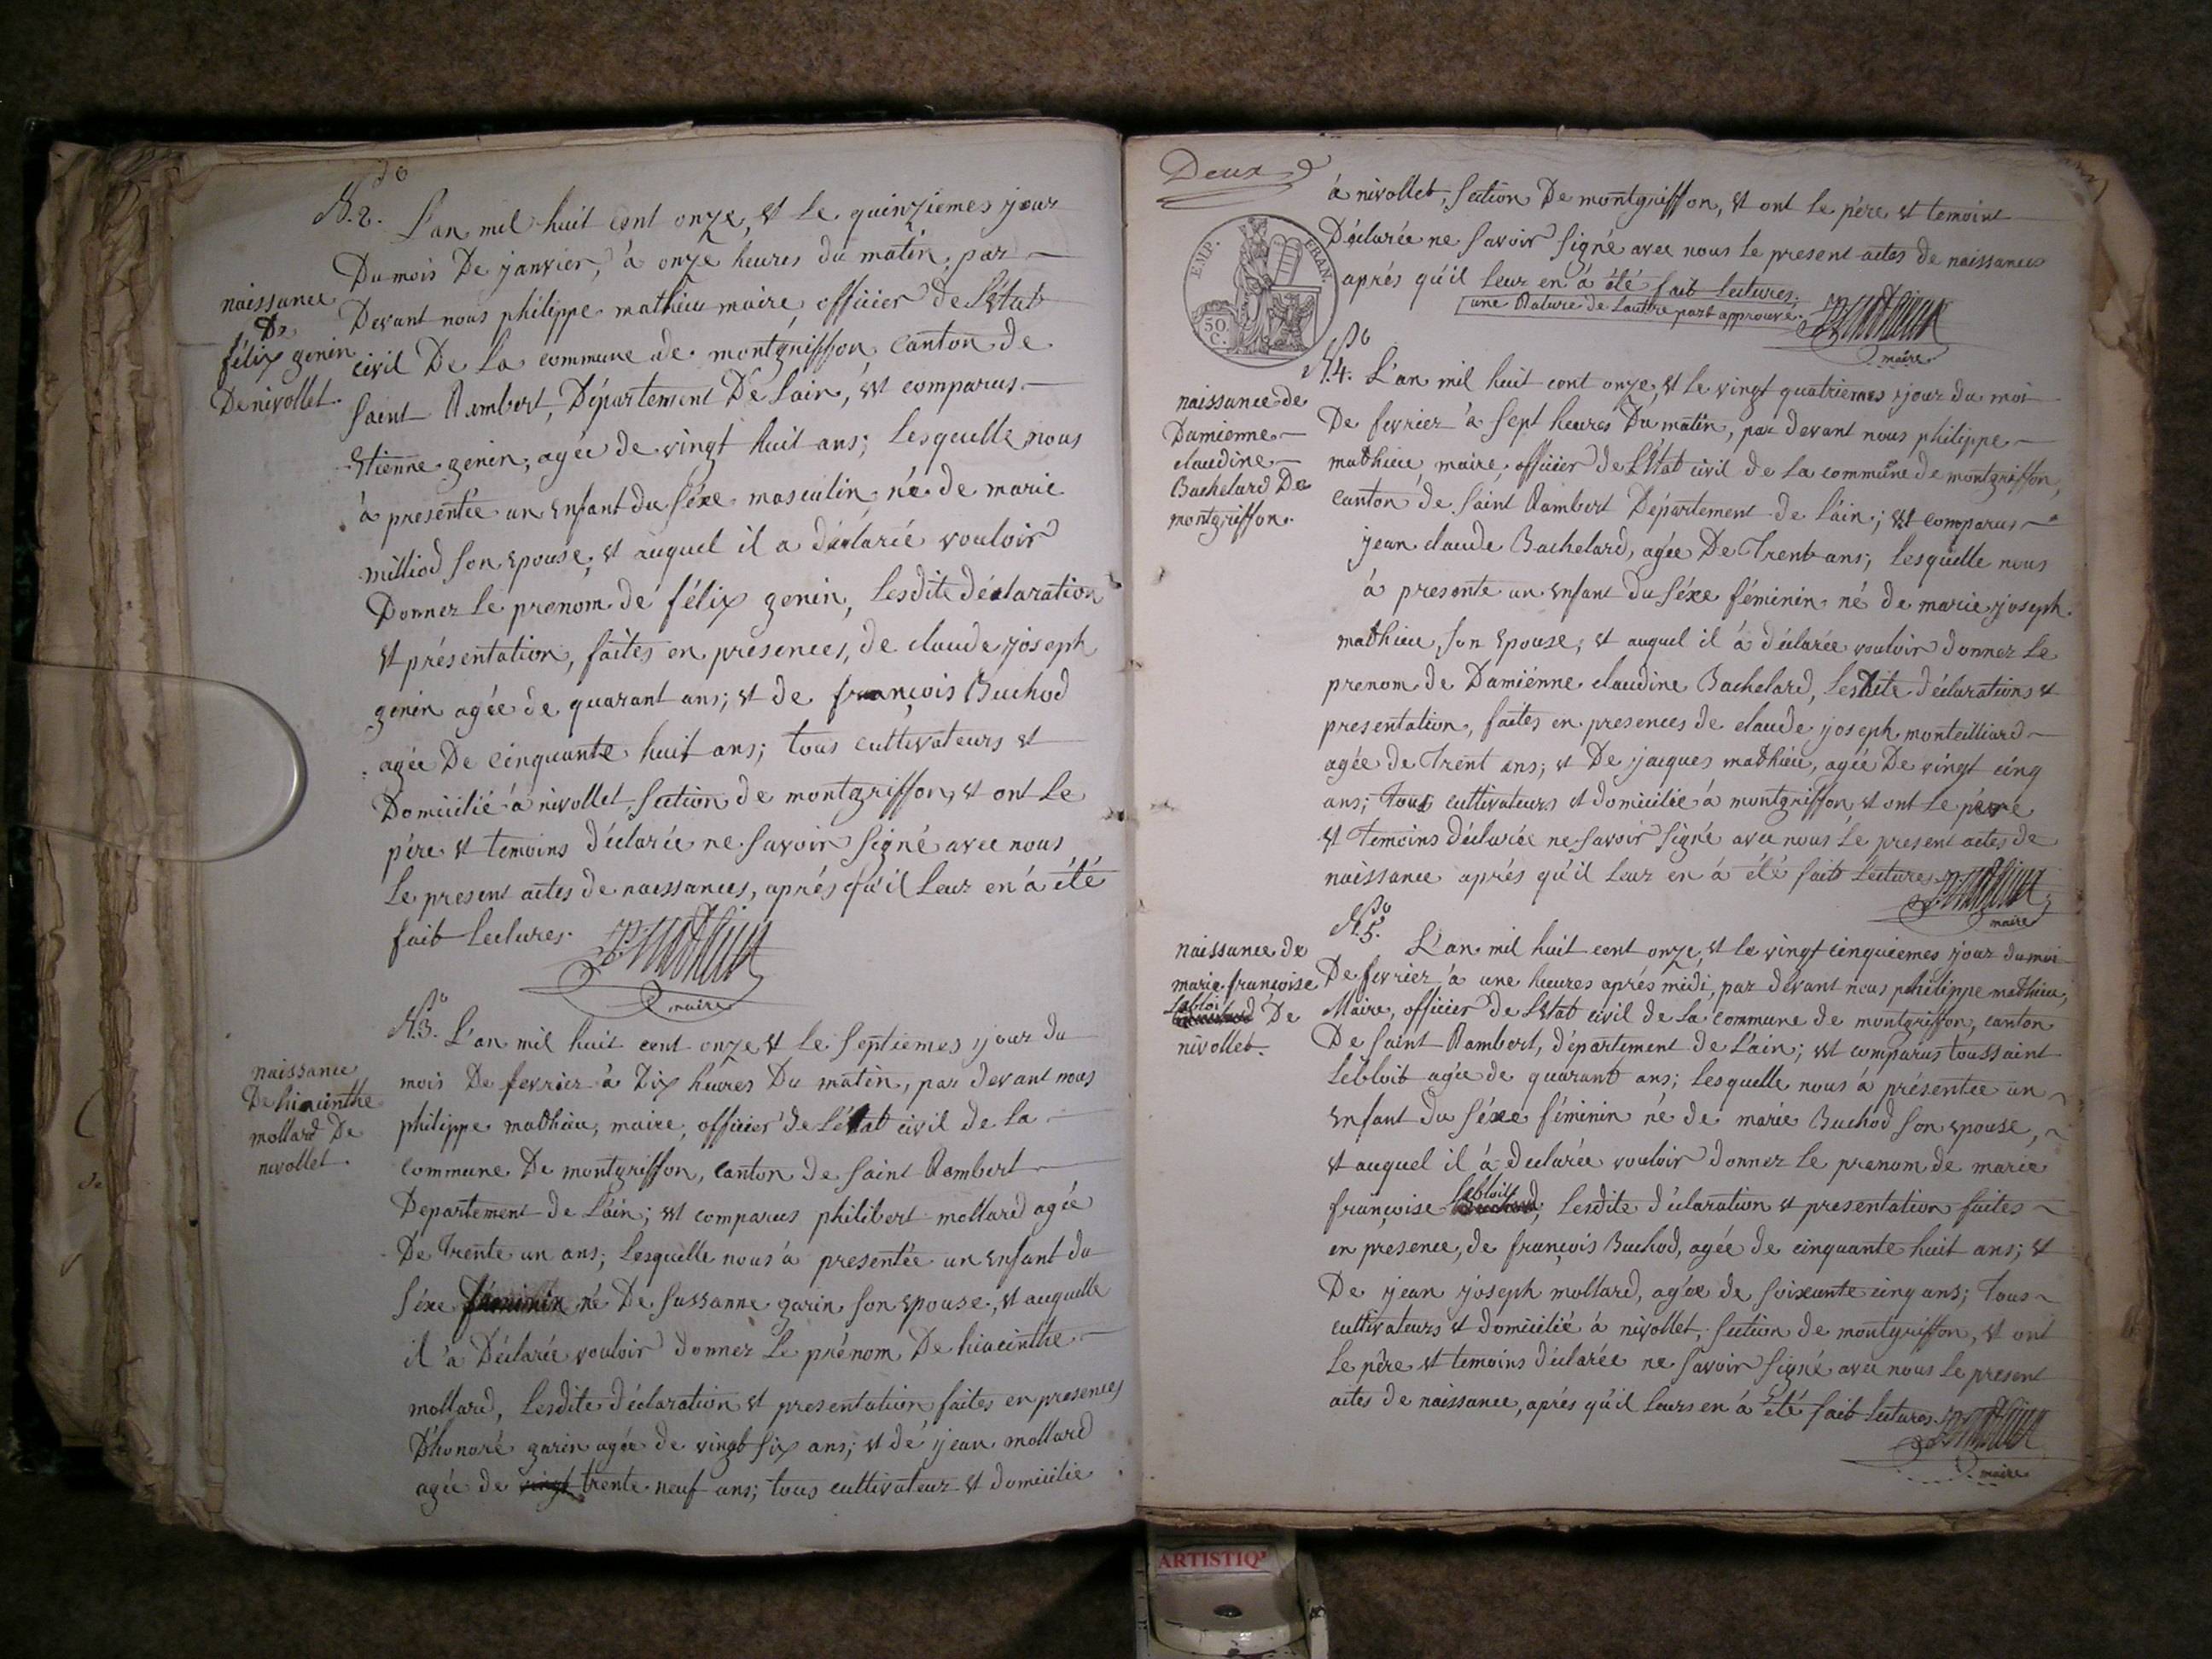 N.º 2. L'an mil huit cent onze, et le quinziemes jour
Du mois De janvier, à onze heures du matin, par
Devant nous philippe mathieu maire officier de L'état
civil De La commune de montgriffon, canton de
Saint Rambert, Département De Lain, est comparus
Etienne genin, agée de vingt huit ans; Lesquelle nous
à presentée un enfant du séxe masculin né de marie
milliod son epouse, et auquel il a déclarée vouloir
Donner Le prenom de félix genin, Lesdite déclaration
et présentation, faites en presences, de claude joseph
genin agée de quarant ans; et de françois Buchod
agée De cinquante huit ans; tous cultivateurs et
Domicilié à nivollet Section de montgriffon, et ont Le
père et temoins déclarée ne savoir signé avec nous
Le present actes de naissances, aprés qu'il Leur en à été
fait Lectures.
maire
naissance
De
félix genin
De nivollet.
N.º 3. L'an mil huit cent onze et Le Septiemes jour du
mois De fevrier à Dix heures Du matin, par devant nous
philippe mathieu, maire, officier de L'état civil de La
commune De montgriffon, canton de Saint Rambert
Departement de L'ain; est comparus philibert mollard agée
De Trente un ans; Lesquelle nous à presentée un enfant du
séxe féminin né De Sussanne garin son epouse, et auquelle
il à Déclarée vouloir donner Le prénom De hiacinthe
mollard, Lesdite déclaration et presentation faites en presences
D'honoré garin agée de vingt six ans; et de jean mollard
agée de vingt trente neuf ans; tous cultivateur et domicilie
naissance
De hiacinthe
mollard De
nivollet.
Deux
EMP. FRAN.
50 C.
à nivollet, Section De montgriffon, et ont Le pére et temoint
Déclarée ne savoir signé avec nous Le present actes de naissances
aprés qu'il Leur en à été fait Lectures;
une Rature de L'autre part approuvé.
maire
N.º 4. L'an mil huit cent onze, et Le vingt quatriemes jour du moi
De fevrier à sept heures Du matin, par devant nous philippe
mathieu, maire, officier de L'état civil de La commune de montgriffon,
canton de Saint Rambert Département de L'ain; est comparus
jean claude Bachelard, agée De Trent ans; Lesquelle nous
à presente un enfant du séxe féminin né de marie joseph
mathieu, son epouse, et auquel il à déclarée vouloir donner Le
prenom de Damiénne claudine Bachelard, Lesdite déclarations et
presentation, faites en presences de claude joseph monteilliard
agée de Trent ans; et De jacques mathieu, agée De vingt cinq
ans; Tous cultivateurs et domicilie à montgriffon, et ont Le père
et Temoins déclarée ne savoir signé avec nous Le present actes de
naissance aprés qu'il Leur en à été fait Lectures.
maire
naissance de
Damienne
claudine
Bachelard De
montgriffon.
N.º 5. L'an mil huit cent onze, et Le vingt cinquiemes jour du moi
De fevrier à une heures aprés midi, par devant nous philippe mathieu,
Maire, officier de L'état civil de La commune de montgriffon, canton
De Saint Rambert, département de L'ain; est comparus toussaint
Lebloit agée de quarant ans; Lesquelle nous à présentee un
enfant du séxe féminin né de marie Buchod son epouse,
et auquel il à declarée vouloir donner Le prenom de marie
françoise Buchod Lebloit, Lesdite déclaration et presentation faites
en presence, de françois Buchod, agée de cinquante huit ans; et
De jean joseph mollard, agée de soixante cinq ans; Tous
cultivateurs et domicilié à nivollet, Section de montgriffon, et ont
Le père et temoins déclarée ne savoir signé avec nous Le present
actes de naissance, aprés qu'il Leurs en à été fait Lectures.
maire
naissance de
marie françoise
Lebloi De
nivollet.
ARTISTIQ